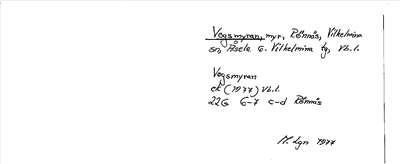 Vegsmyran, myr, Rönnäs, Vilhelmina
sn, Åsele o. Vilhelmina tg, Vb.l.
Vegsmyran
ek (1977) Vb.l.
22G 6-7 c-d Rönnäs
M. Lgn 1977